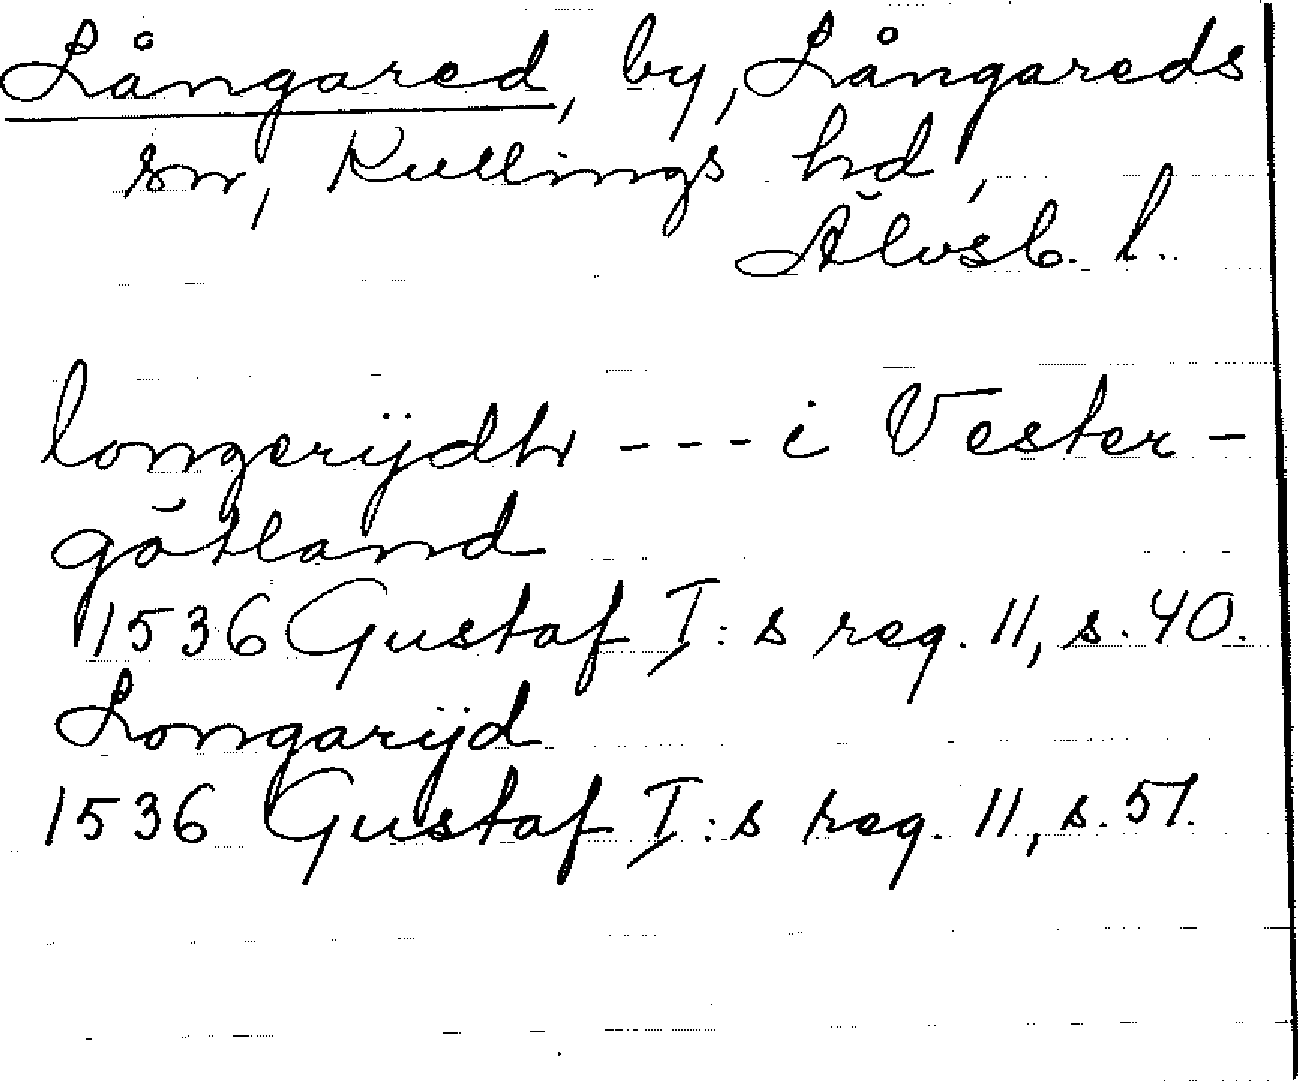 Långared, by, Långareds
sn, Kullings hd,
Älvsb. l.
longerÿdh --- i Vester-
götland
1536 Gustaf I:s reg. 11, s. 40.
Longarÿd
1536 Gustaf I:s reg. 11, s. 51.